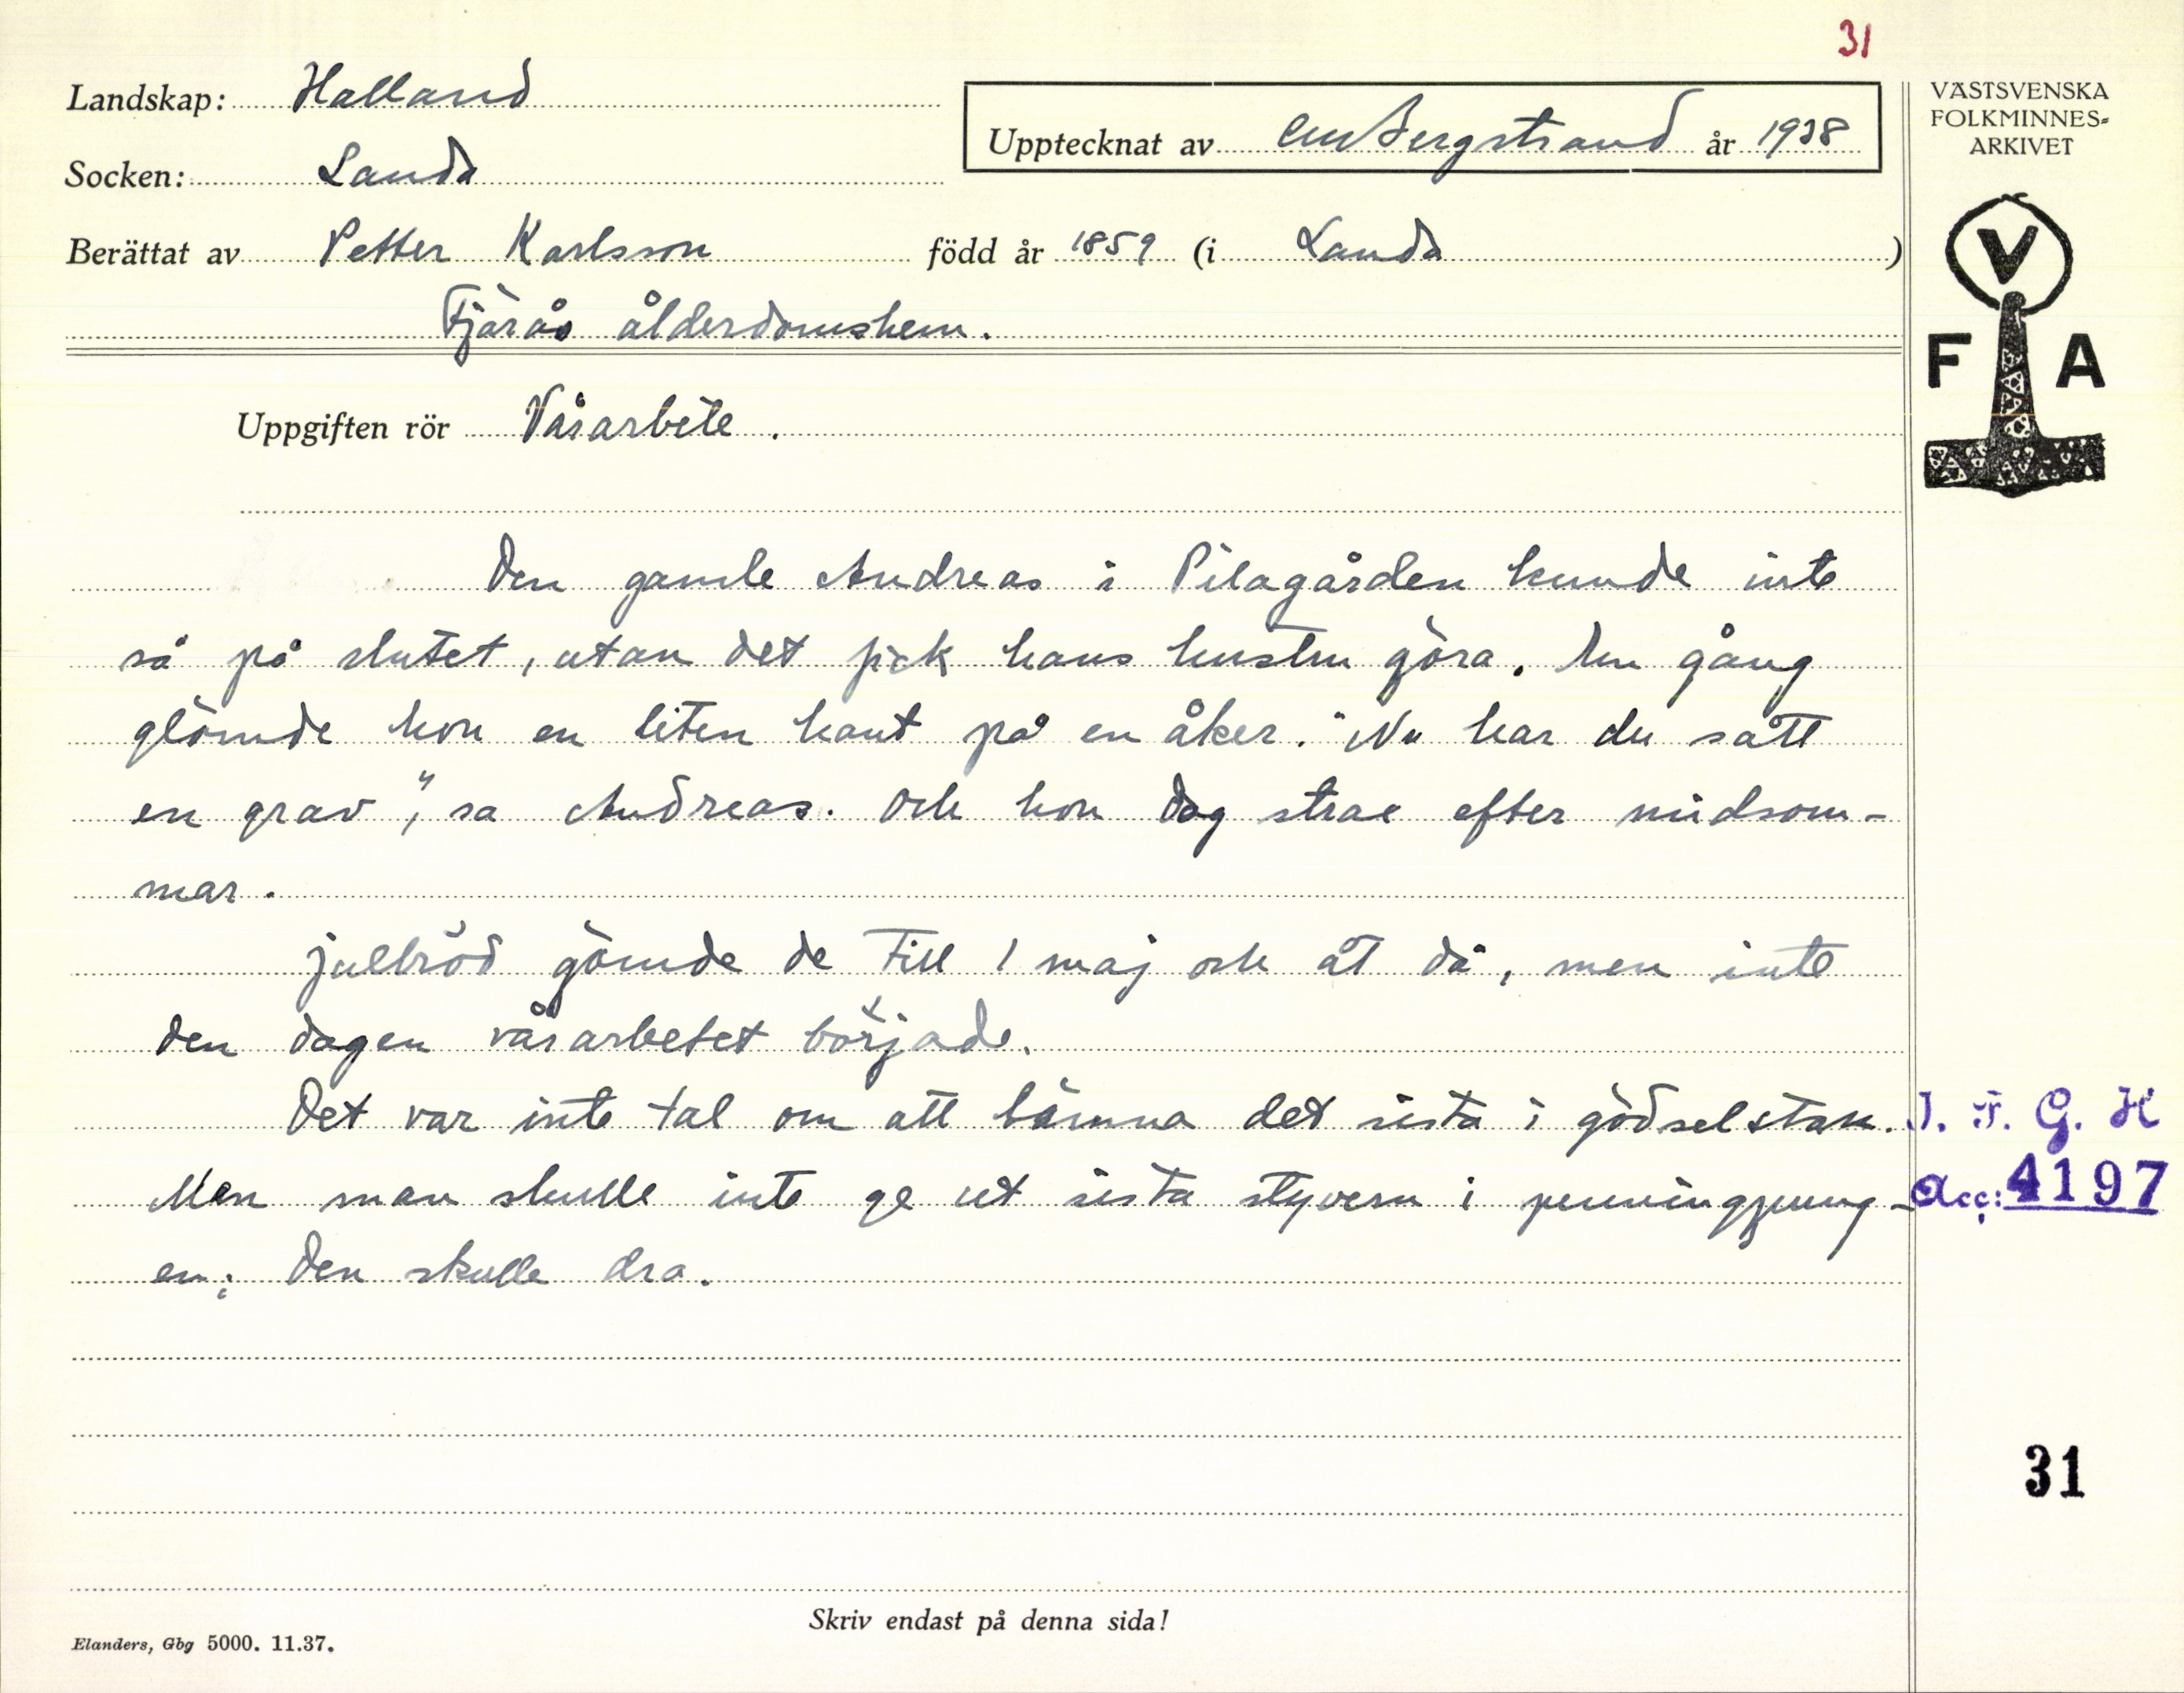 31
Landskap: Halland
Upptecknat av CM Bergstrand år 1938
Socken: Landa
Berättat av Petter Karlsson född år 1859 (i Landa)
Fjärås ålderdomshem.
Uppgiften rör Vårarbete.
Den gamle Andreas i Pilagården kunde inte
så på slutet, utan det fick hans hustru göra. En gång
glömde hon en liten kant på en åker. "Nu har du sått
en grav", sa Andreas. Och hon dog strax efter midsom-
mar.
Julbröd gömde de till 1 maj och åt då, men inte
den dagen vårarbetet började.
Det var inte tal om att lämna det sista i gödselstan.
Men man skulle inte ge ut sista styvern i penningpung-
en; den skulle dra.
Skriv endast på denna sida!
Elanders, Gbg 5000. 11.37.
VÄSTSVENSKA
FOLKMINNES-
ARKIVET
V
F A
I. F. G. H
Acc: 4197
31